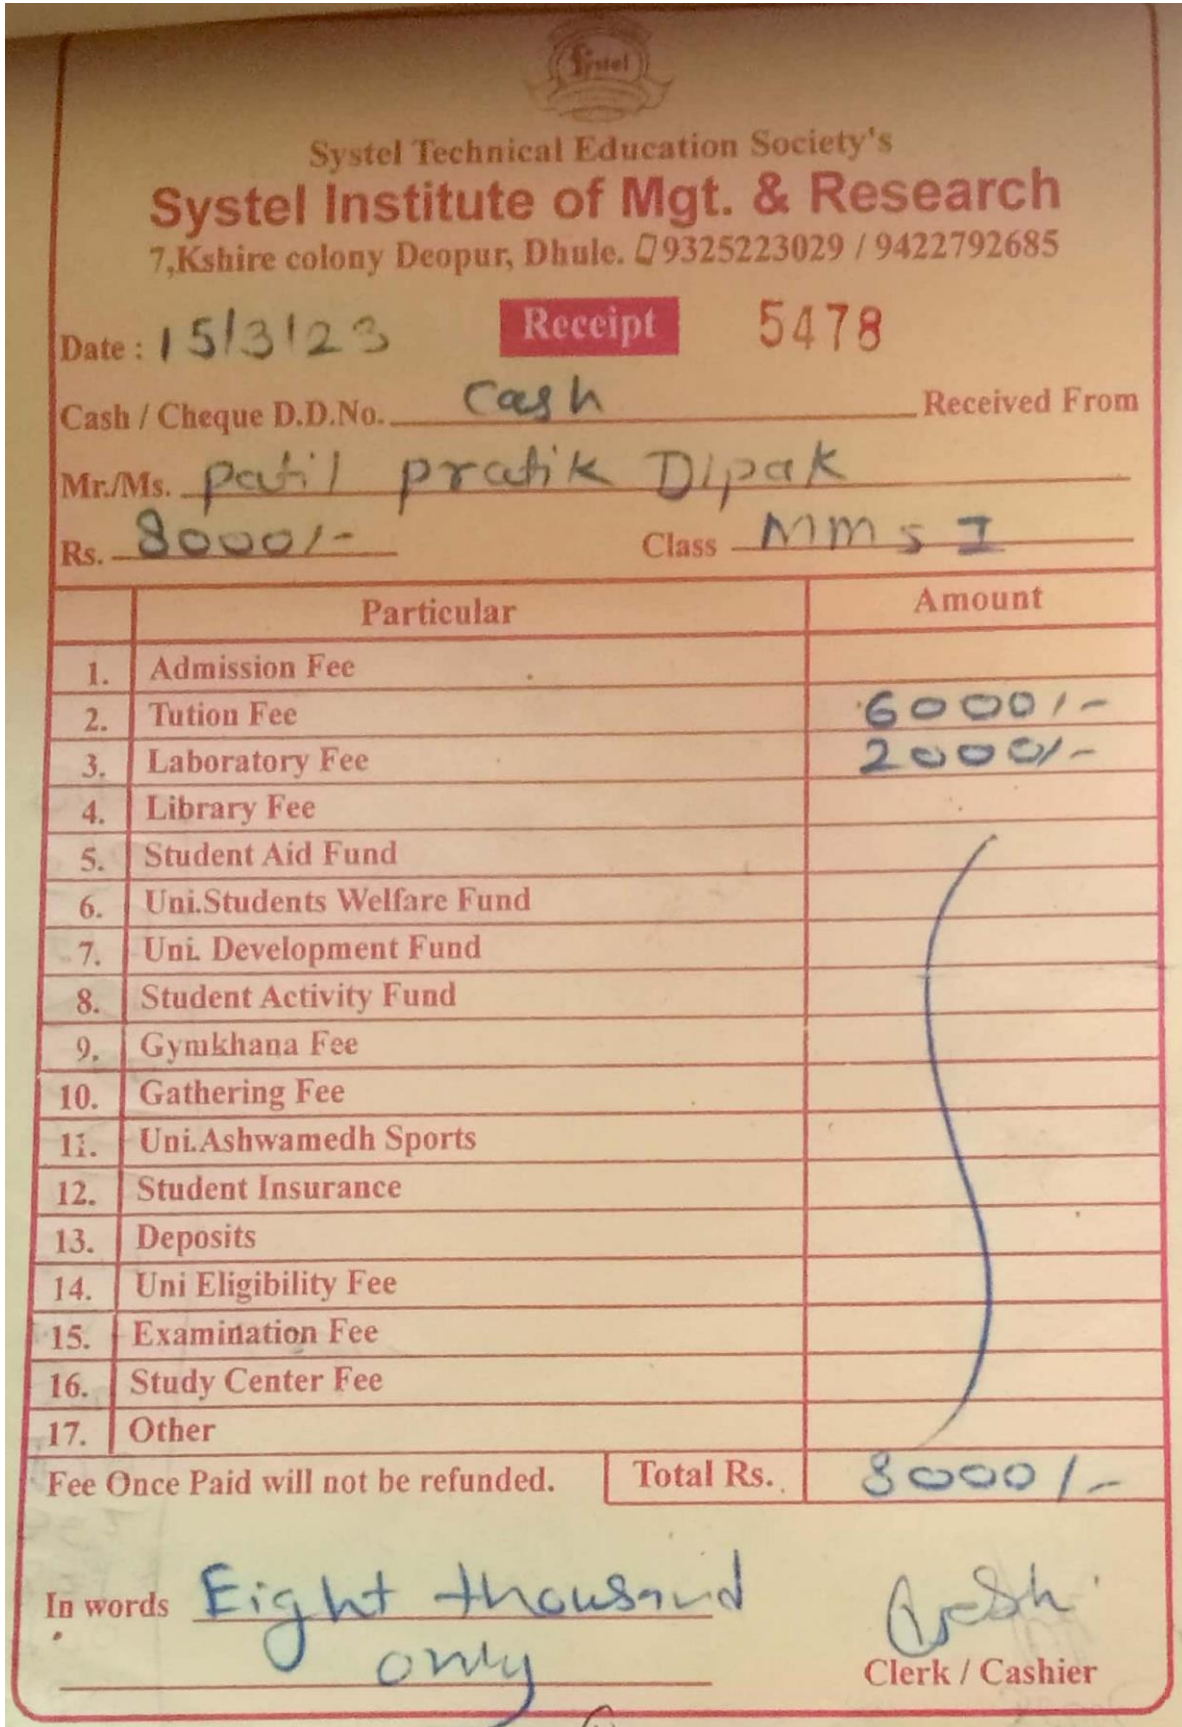 Systel
Systel Technical Education Society's
Systel Institute of Mgt. & Research
7,Kshire colony Deopur, Dhule. 9325223029 / 9422792685
Date : 15/3/23 Receipt 5478
Cash / Cheque D.D.No. Cash Received From
Mr./Ms. Patil Pratik Dipak
Rs. 8000/- Class MMS I
Particular Amount
1. Admission Fee
2. Tution Fee 6000/-
3. Laboratory Fee 2000/-
4. Library Fee
5. Student Aid Fund
6. Uni.Students Welfare Fund
7. Uni. Development Fund
8. Student Activity Fund
9. Gymkhana Fee
10. Gathering Fee
11. Uni.Ashwamedh Sports
12. Student Insurance
13. Deposits
14. Uni Eligibility Fee
15. Examination Fee
16. Study Center Fee
17. Other
Fee Once Paid will not be refunded. Total Rs. 8000/-
In words Eight thousand
only
Clerk / Cashier